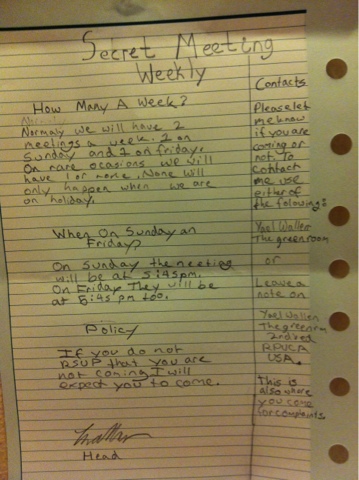 Secret Meeting
Weekly
How Many A Week?
Normaly we will have 2
meetings a week. 1 on
Sunday and 1 on friday.
On rare ocasions we will
have 1 or more. None will
only happen when we are
on holiday.
When On Sunday an
Friday?
On Sunday the meeting
will be at 5:45pm.
On Friday They will be
at 6:45 pm too.
Policy
If you do not
RSUP that you are
not coming I will
expect you to come.
Head
Contacts
Please let
me know
if you are
coming or
not. To
Contact
me use
either of
the folowing:
Yael Wallen
The green room
or
Leave a
note on
Yael Wallen
The green
USA.
This is
also where
you come
for complaints.